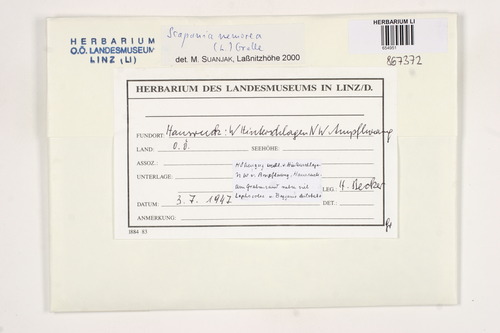 HERBARIUM
O.Ö. LANDESMUSEUM
LINZ (LI)
Scapania nemorea
(L.) Grolle
det. M. SUANJAK, Laßnitzhöhe 2000
HERBARIUM LI
654951
867372
HERBARIUM DES LANDESMUSEUMS IN LINZ/D.
FUNDORT: Hausruck: W Hinterschlagen NW Ampflwang
LAND: O.Ö. SEEHÖHE:
ASSOZ.:
UNTERLAGE:
Höhenzug westl. v. Hinterschlagen
N.W. v. Ampflwang, Hausruck.
am Grabenrand neben viel
Lophocolea u.
LEG. H. Becker
DATUM: 3.7.1947 DET.:
ANMERKUNG:
1884 83